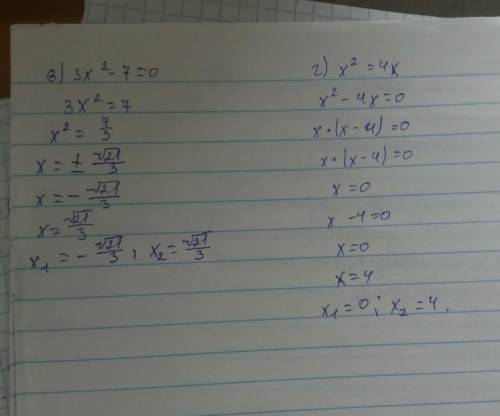 в) 3x² - 7 = 0
3x² = 7
x² = 7/3
x = ± √21/3
x = - √21/3
x = √21/3
x₁ = - √21/3 ; x₂ = √21/3
г) x² = 4x
x² - 4x = 0
x • (x - 4) = 0
x • (x - 4) = 0
x = 0
x - 4 = 0
x = 0
x = 4
x₁ = 0 ; x₂ = 4 .